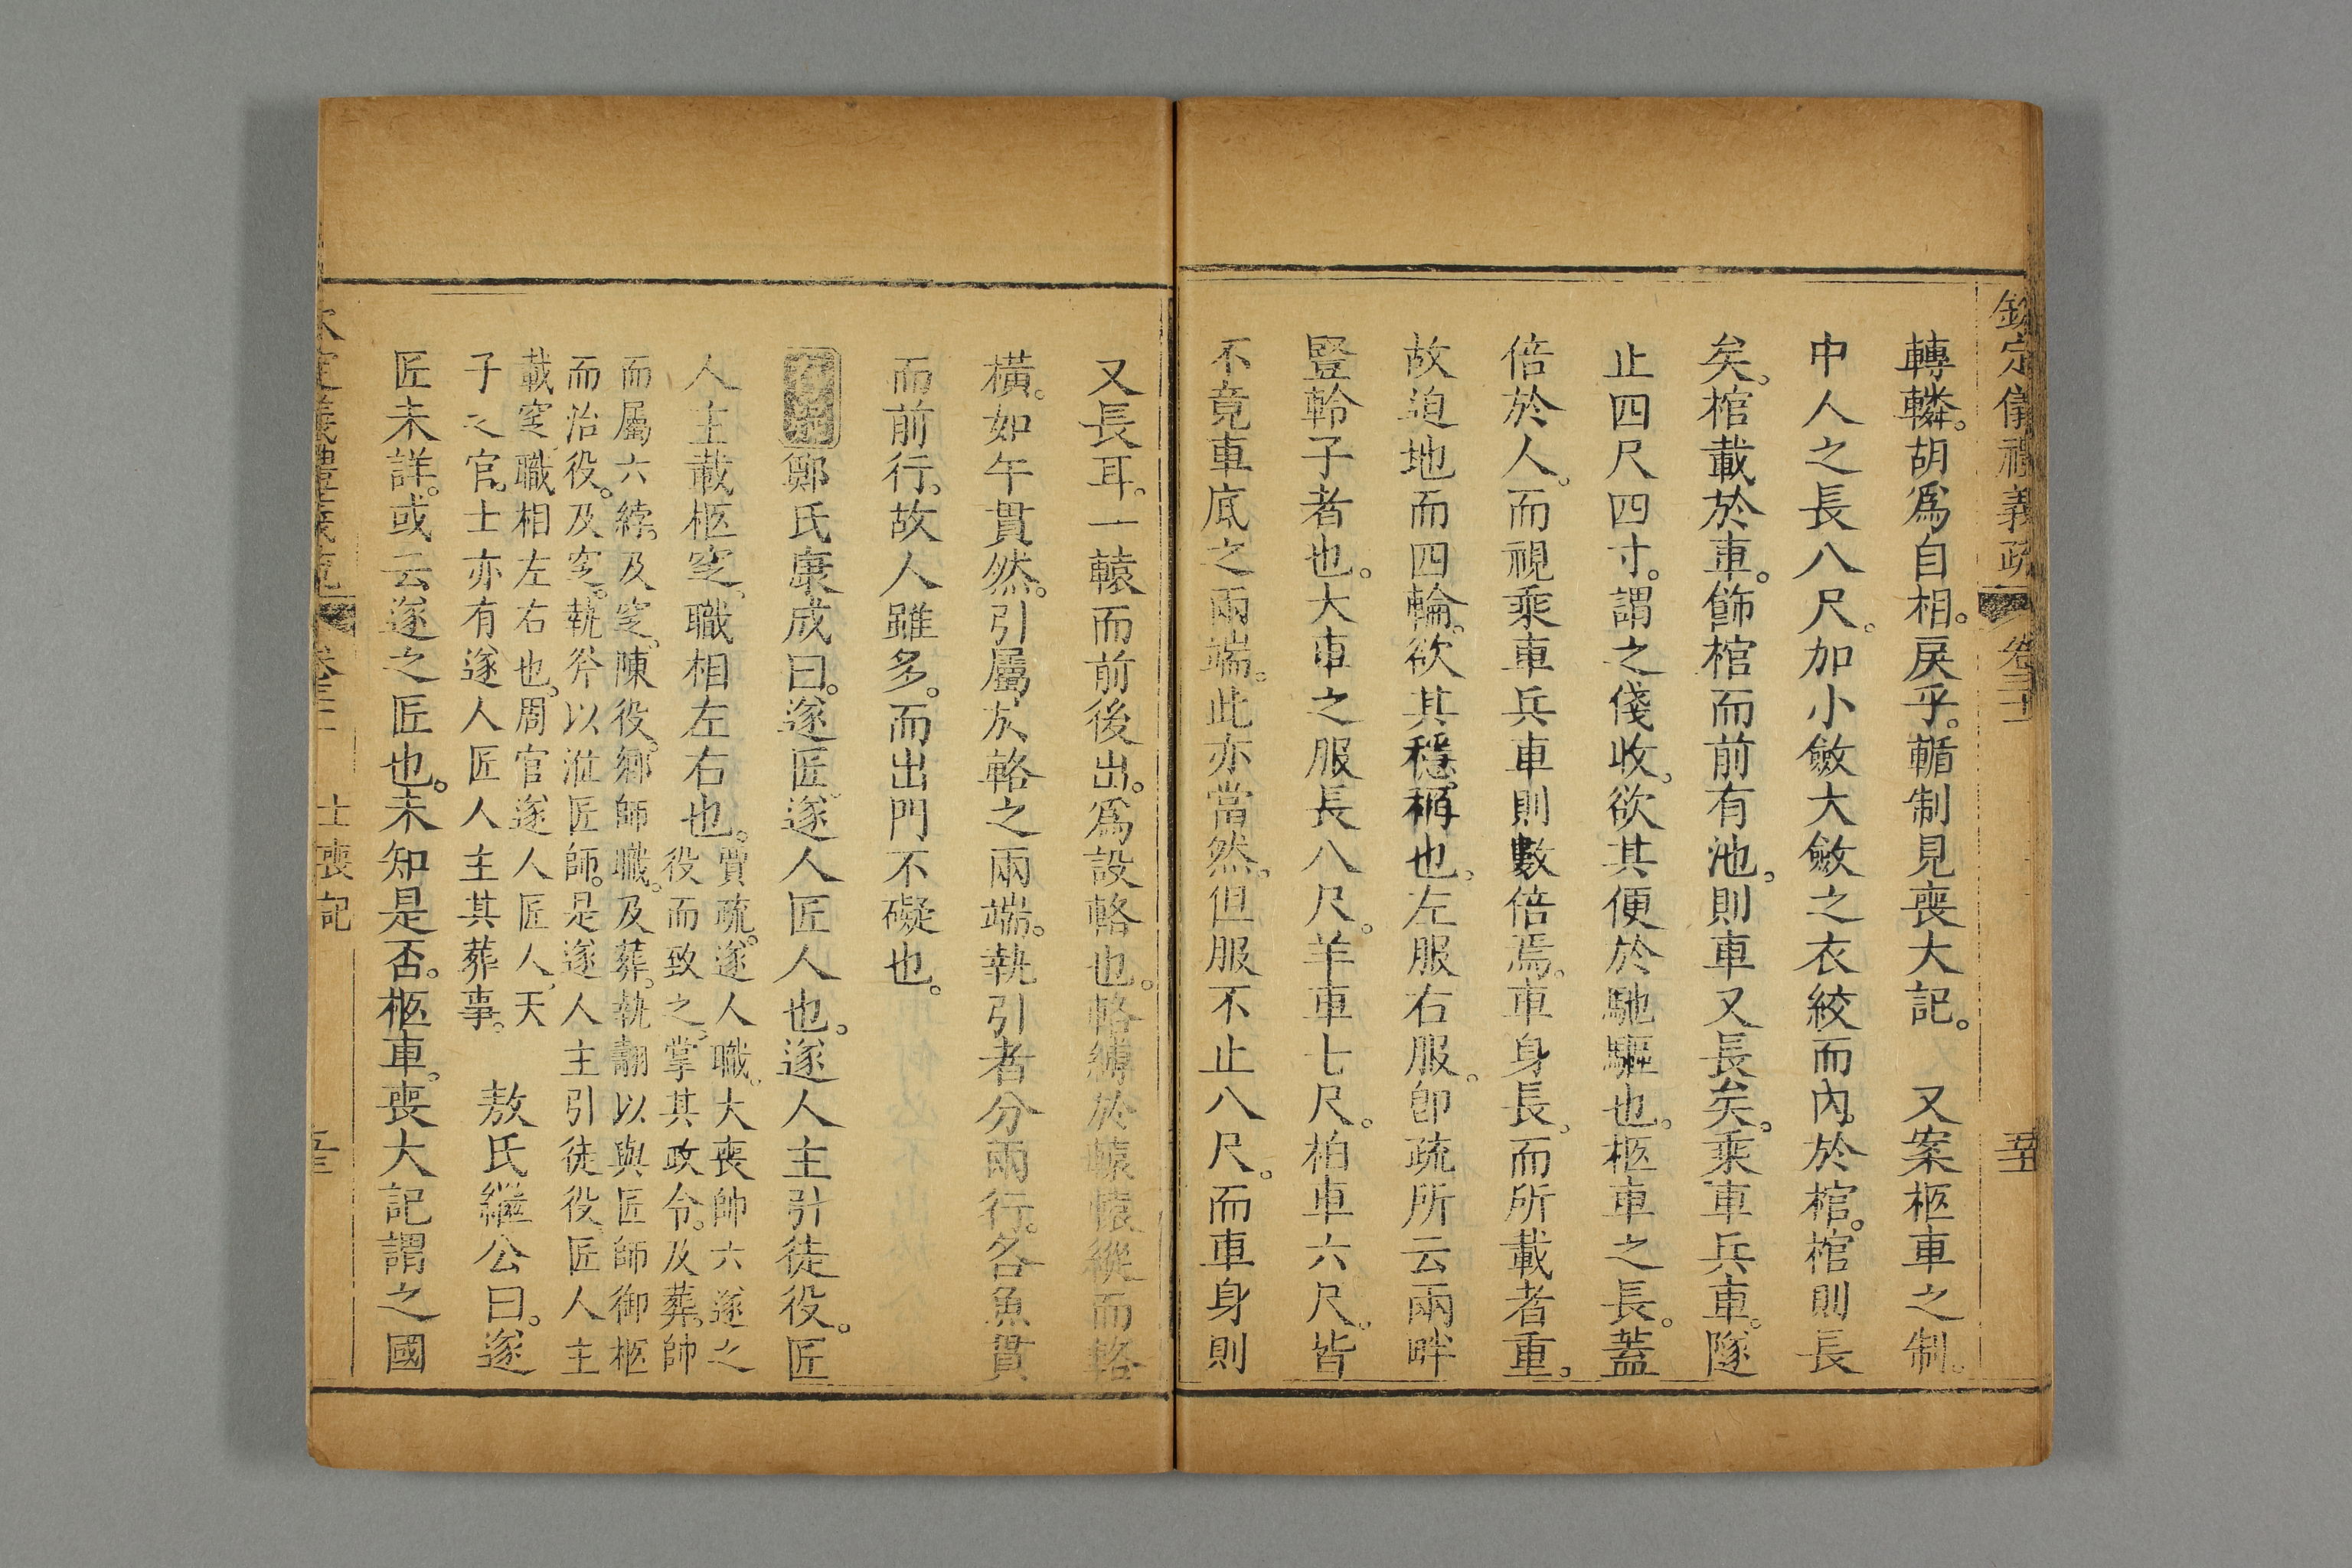 欽定儀禮義疏 卷三十
轉轔。胡爲自相。戾乎。輴制見喪大記。　又案柩車之制。
中人之長八尺。加小斂大斂之衣絞而內。於棺。棺則長
矣。棺載於車。飾棺而前有池。則車又長矣。乘車兵車。隧
止四尺四寸。謂之俴收。欲其便於馳驅也。柩車之長。蓋
倍於人。而視乘車兵車則數倍焉。車身長。而所載者重。
故迫地而四輪。欲其穩稱也。左服右服。卽疏所云兩畔
豎軨子者也。大車之服長八尺。羊車七尺。柏車六尺。皆
不竟車底之兩端。此亦當然。但服不止八尺。而車身則
又長耳。一轅而前後出。爲設輅也。輅縛於轅。轅縱而輅
橫。如午貫然。引屬於輅之兩端。執引者分兩行。各魚貫
而前行。故人雖多。而出門不礙也。
鄭氏康成曰。遂匠。遂人匠人也。遂人主引徒役。匠
人主載柩窆。職相左右也。賈疏。遂人職。大喪帥六遂之
役而致之。掌其政令。及葬。帥
而屬六綍。及窆。陳役。鄉師職。及葬。執翿以與匠師御柩
而治役。及窆。執斧以涖匠師。是遂人主引徒役。匠人主
載窆。職相左右也。周官遂人匠人。天
子之官。士亦有遂人匠人主其葬事。　敖氏繼公曰。遂
匠未詳。或云遂之匠也。未知是否。柩車。喪大記謂之國
士喪記